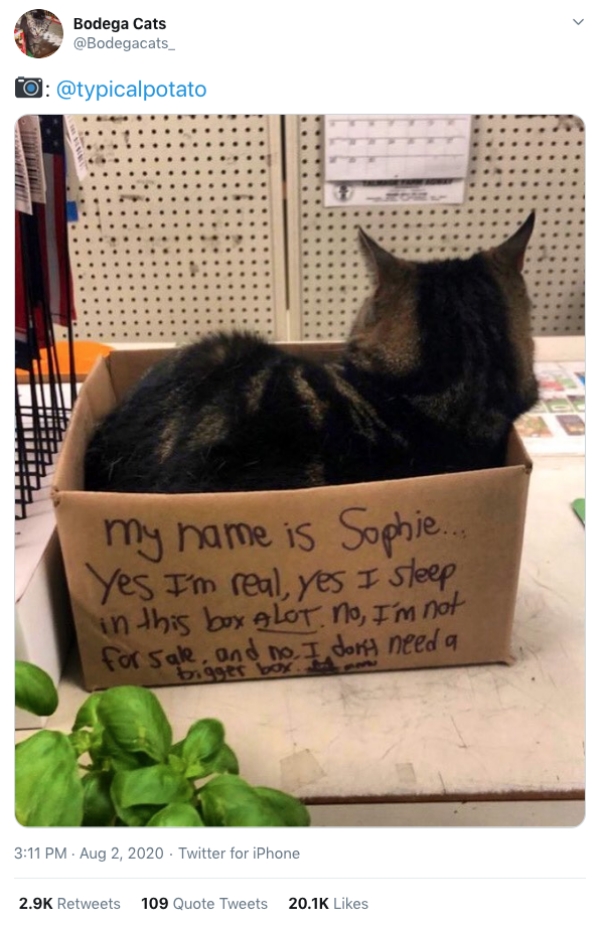 Bodega Cats
@Bodegacats_
📷: @typicalpotato
my name is Sophie...
Yes I'm real, yes I sleep
in this box ALOT. no, I'm not
for sale, and no, I don't need a
bigger box.
3:11 PM · Aug 2, 2020 · Twitter for iPhone
2.9K Retweets 109 Quote Tweets 20.1K Likes